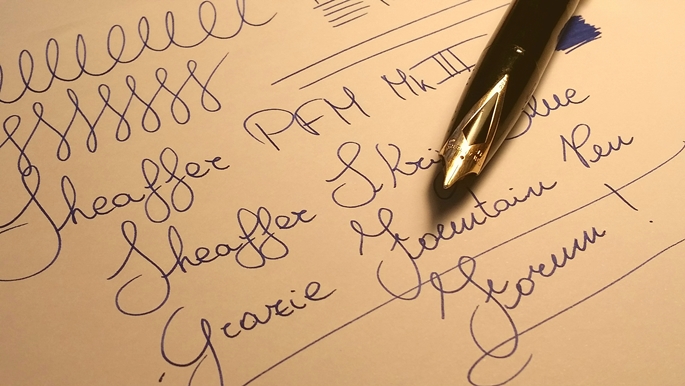 Sheaffer PFM Mk III
Sheaffer SKri lue
Grazie Fountain Pen
Forum!